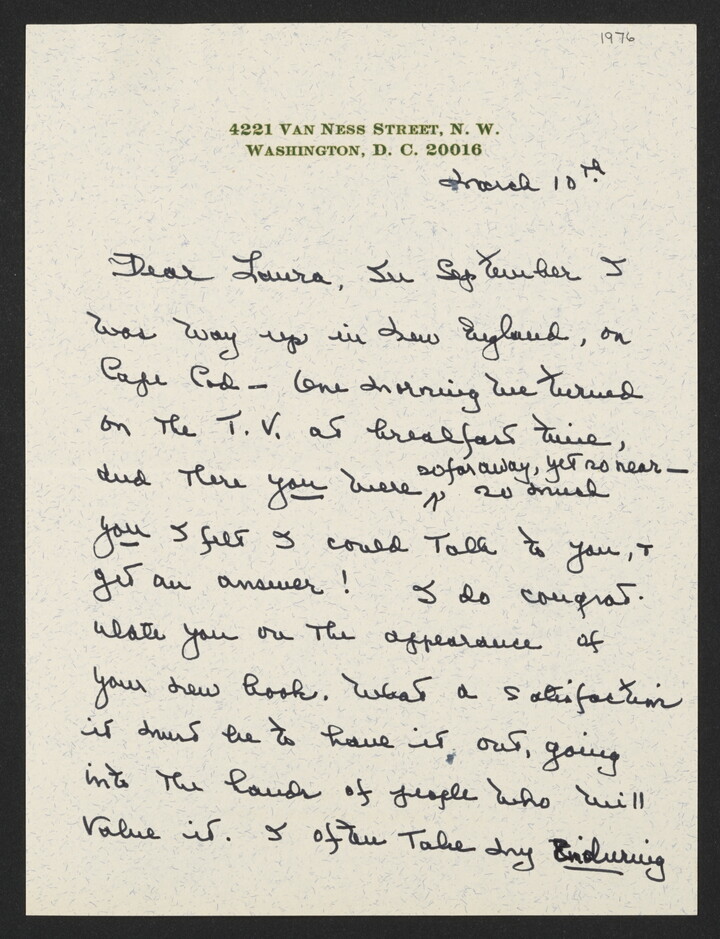 1976
4221 VAN NESS STREET, N. W.
WASHINGTON, D. C. 20016
March 10th
Dear Laura, In September I
was way up in New England, on
Cape Cod – One morning we turned
on the T. V. at breakfast time,
so far away, yet so near –
and there you were, so much
you I felt I could talk to you, +
get an answer! I do congrat-
ulate you on the appearance of
your new book. What a satisfaction
it must be to have it out, going
into the hands of people who will
value it. I often take my Enduring